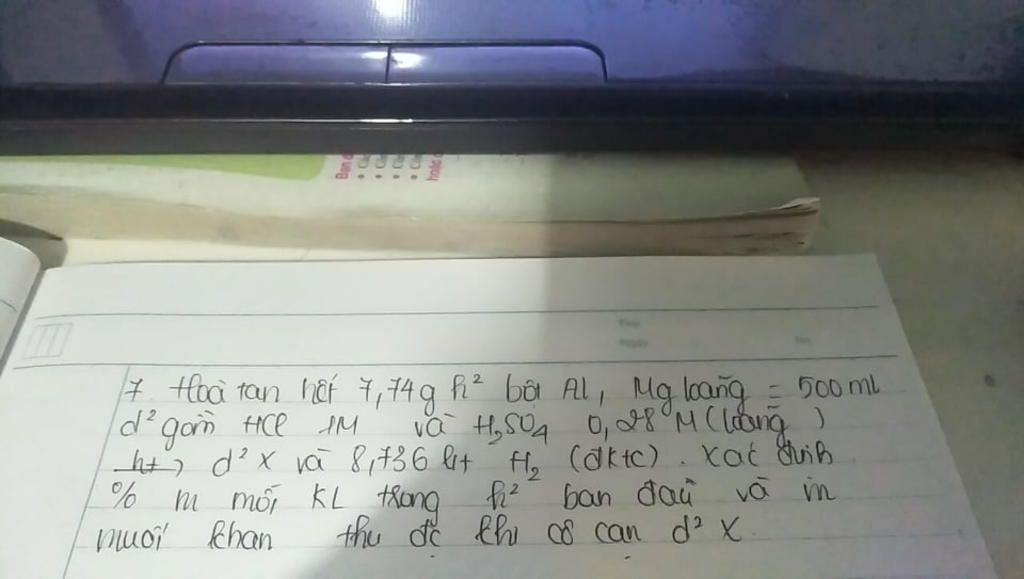 Ban đ
• Các
• Cá
• Cá
• Cá
hoặc c
Thứ
Ngày
No
7. Hoà tan hết 7,74g h² bột Al, Mg loãng = 500 ml
d² gồm HCl 1M và H₂SO₄ 0,28 M (loãng)
→ d² X và 8,736 lít H₂ (đktc). Xác định
% m mỗi KL trong h² ban đầu và m
muối khan thu đc khi cô cạn d² X